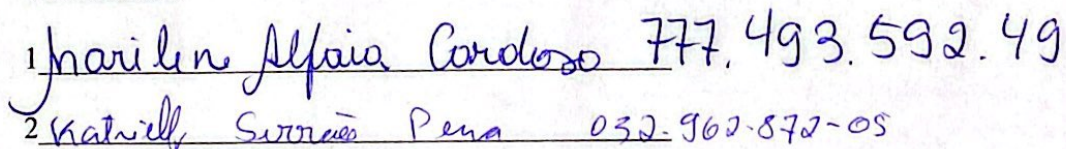 1 Marilen Alfaia Cardoso 777.493.592.49
2 Katrielly Serrão Pena 032.962.872-05